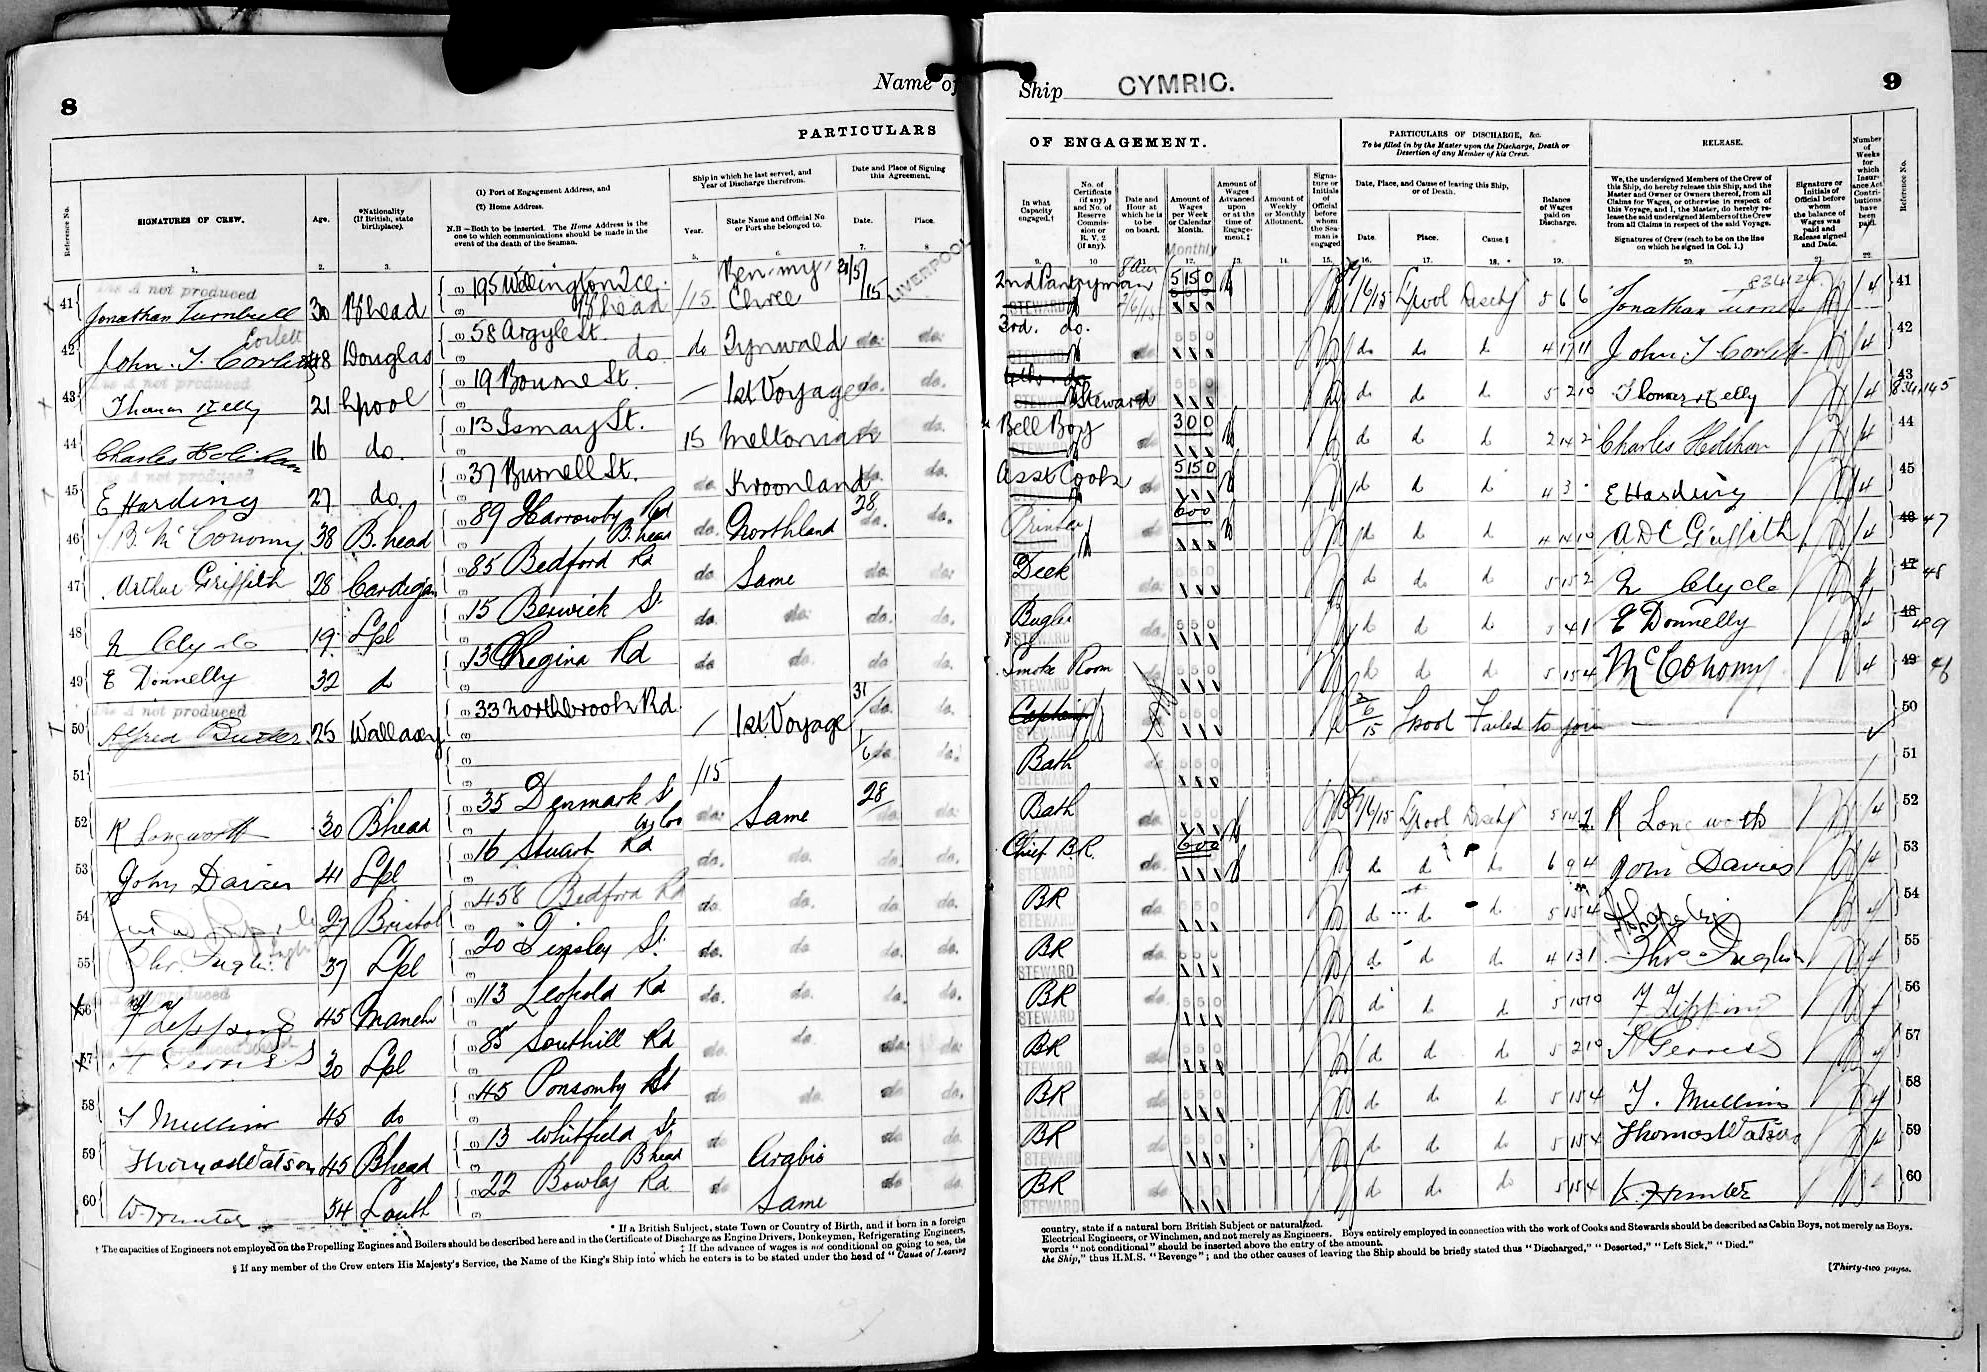 8
Name of
PARTICULARS
Reference No.
SIGNATURES OF CREW.
Age.
*Nationality (If British, state birthplace).
(1) Port of Engagement Address, and
(2) Home Address.
N.B.—Both to be inserted. The Home Address is the one to which communications should be made in the event of the death of the Seaman.
Ship in which he last served, and Year of Discharge therefrom.
Year.
State Name and Official No. or Port she belonged to.
Date and Place of Signing this Agreement.
Date.
Place.
1. 2. 3. 4 5. 6. 7. 8
41 Jonathan Turnbull 30 B'head 195 Wellington Tce B'head /15 Ben-my-Chree 31/5/15 LIVERPOOL
Corlett
42 John. T. Corlett 48 Douglas 58 Argyle St. do do Tynwald do. do.
Dis A not produced
43 Thomas Kelly 21 Lpool 19 Bourne St. — 1st Voyage do. do.
44 Charles Holihan 16 do. 13 Ismay St. 15 Meltonian do. do.
not produced
45 E Harding 27 do. 37 Burnell St. do. Kroonland do. do.
46 B. McConomy 38 B.head 89 Harrowby Rd B.head do. Northland 28 do. do.
47 Arthur Griffith 28 Cardigan 85 Bedford Rd do Same do. do.
48 N Clyde 19 Lpl 15 Berwick St do. do. do. do.
49 E Donnelly 32 do 13 Regina Rd do do. do do.
Dis A not produced
50 Alfred Butler 25 Wallasey 33 Northbrook Rd. / 1st Voyage 31/do. do.
51 /15 1/6 do. do.
52 R Longworth 30 B'head 35 Denmark St do. Same 28 do. do.
53 John Davies 41 Lpl 16 Stuart Rd do. do. do. do.
54 27 Bristol 458 Bedford Rd do. do. do. do.
55 37 Lpl 20 Tinsley St. do. do. do. do.
56 45 Manch 113 Leopold Rd do. do. do. do.
57 30 Lpl 85 Southill Rd do. do. do. do.
58 T Mullin 45 do 45 Ponsomby St do do. do. do.
59 Thomas Watson 45 Bhead 13 Whitfield St Bhead do Arabic do do.
60 W. Hunter 34 Louth 22 Bowley Rd do Same do do.
* If a British Subject, state Town or Country of Birth, and if born in a foreign
† The capacities of Engineers not employed on the Propelling Engines and Boilers should be described here and in the Certificate of Discharge as Engine Drivers, Donkeymen, Refrigerating Engineers,
‡ If the advance of wages is not conditional on going to sea, the
§ If any member of the Crew enters His Majesty's Service, the Name of the King's Ship into which he enters is to be stated under the head of "Cause of Leaving
Ship CYMRIC.
9
OF ENGAGEMENT.
PARTICULARS OF DISCHARGE, &c.
To be filled in by the Master upon the Discharge, Death or Desertion of any Member of his Crew.
RELEASE.
In what Capacity engaged.†
No. of Certificate (if any) and No. of Reserve Commission or R. V. 2 (if any).
Date and Hour at which he is to be on board.
Amount of Wages per Week or Calendar Month.
Monthly
Amount of Wages Advanced upon or at the time of Engagement.‡
Amount of Weekly or Monthly Allotment.
Signature or Initials of Official before whom the Seaman is engaged
Date, Place, and Cause of leaving this Ship, or of Death.
Date. Place. Cause.§
Balance of Wages paid on Discharge.
We, the undersigned Members of the Crew of this Ship, do hereby release this Ship, and the Master and Owner or Owners thereof, from all Claims for Wages, or otherwise in respect of this Voyage, and I, the Master, do hereby release the said undersigned Members of the Crew from all Claims in respect of the said Voyage.
Signatures of Crew (each to be on the line on which he signed in Col. 1.)
Signature or Initials of Official before whom the balance of Wages was paid and Release signed and Date.
Number of Weeks for which Insurance Act Contributions have been paid.
Reference No.
9. 10 11. 12. 13. 14. 15. 16. 17. 18. 19. 20. 21. 22.
2nd Pantryman 8 am 5 15 0 7/6/15 Lpool Disch 5 6 6 Jonathan Turnbull 4 41
3rd. do. do. 5 5 0 do do d 4 17 11 John T Corlett 4 42
Steward do 5 5 0 do do d 5 2 10 Thomas Kelly 4 43 834145
Bell Boy do 3 0 0 d d d 2 14 2 Charles Holihan 4 44
Asst Cook do 5 15 0 d d d 4 3 - E Harding 4 45
Printer do 6 0 0 d d d 4 14 10 A D C Griffith 4 46 47
Deck 5 5 0 d d d 5 15 2 N Clyde 4 47 48
Bugler do. 5 5 0 d d d 5 4 1 E Donnelly 4 48 49
Smoke Room 5 5 0 d d d 5 15 4 McConomy 4 49 46
5 5 0 2/6/15 Lpool Failed to join 50
Bath 5 5 0 51
Bath 7/6/15 Lpool Disch 5 14 2 R Longworth 4 52
Chief B.R. do. 6 0 0 d d d 6 9 4 John Davies 4 53
BR do. 5 5 0 d d d 5 15 4 4 54
BR do. 5 5 0 d d d 4 13 1 4 55
BR do. 5 5 0 d d d 5 10 10 4 56
BR do 5 5 0 d d d 5 2 10 4 57
BR do 5 5 0 d d d 5 15 4 T. Mullin 4 58
BR do 5 5 0 d d d 5 15 4 Thomas Watson 4 59
BR do 5 5 0 d d do 5 15 4 W. Hunter 4 60
country, state if a natural born British Subject or naturalized.
Electrical Engineers, or Winchmen, and not merely as Engineers. Boys entirely employed in connection with the work of Cooks and Stewards should be described as Cabin Boys, not merely as Boys.
words "not conditional" should be inserted above the entry of the amount.
the Ship," thus H.M.S. "Revenge"; and the other causes of leaving the Ship should be briefly stated thus "Discharged," "Deserted," "Left Sick," "Died."
[Thirty-two pages.